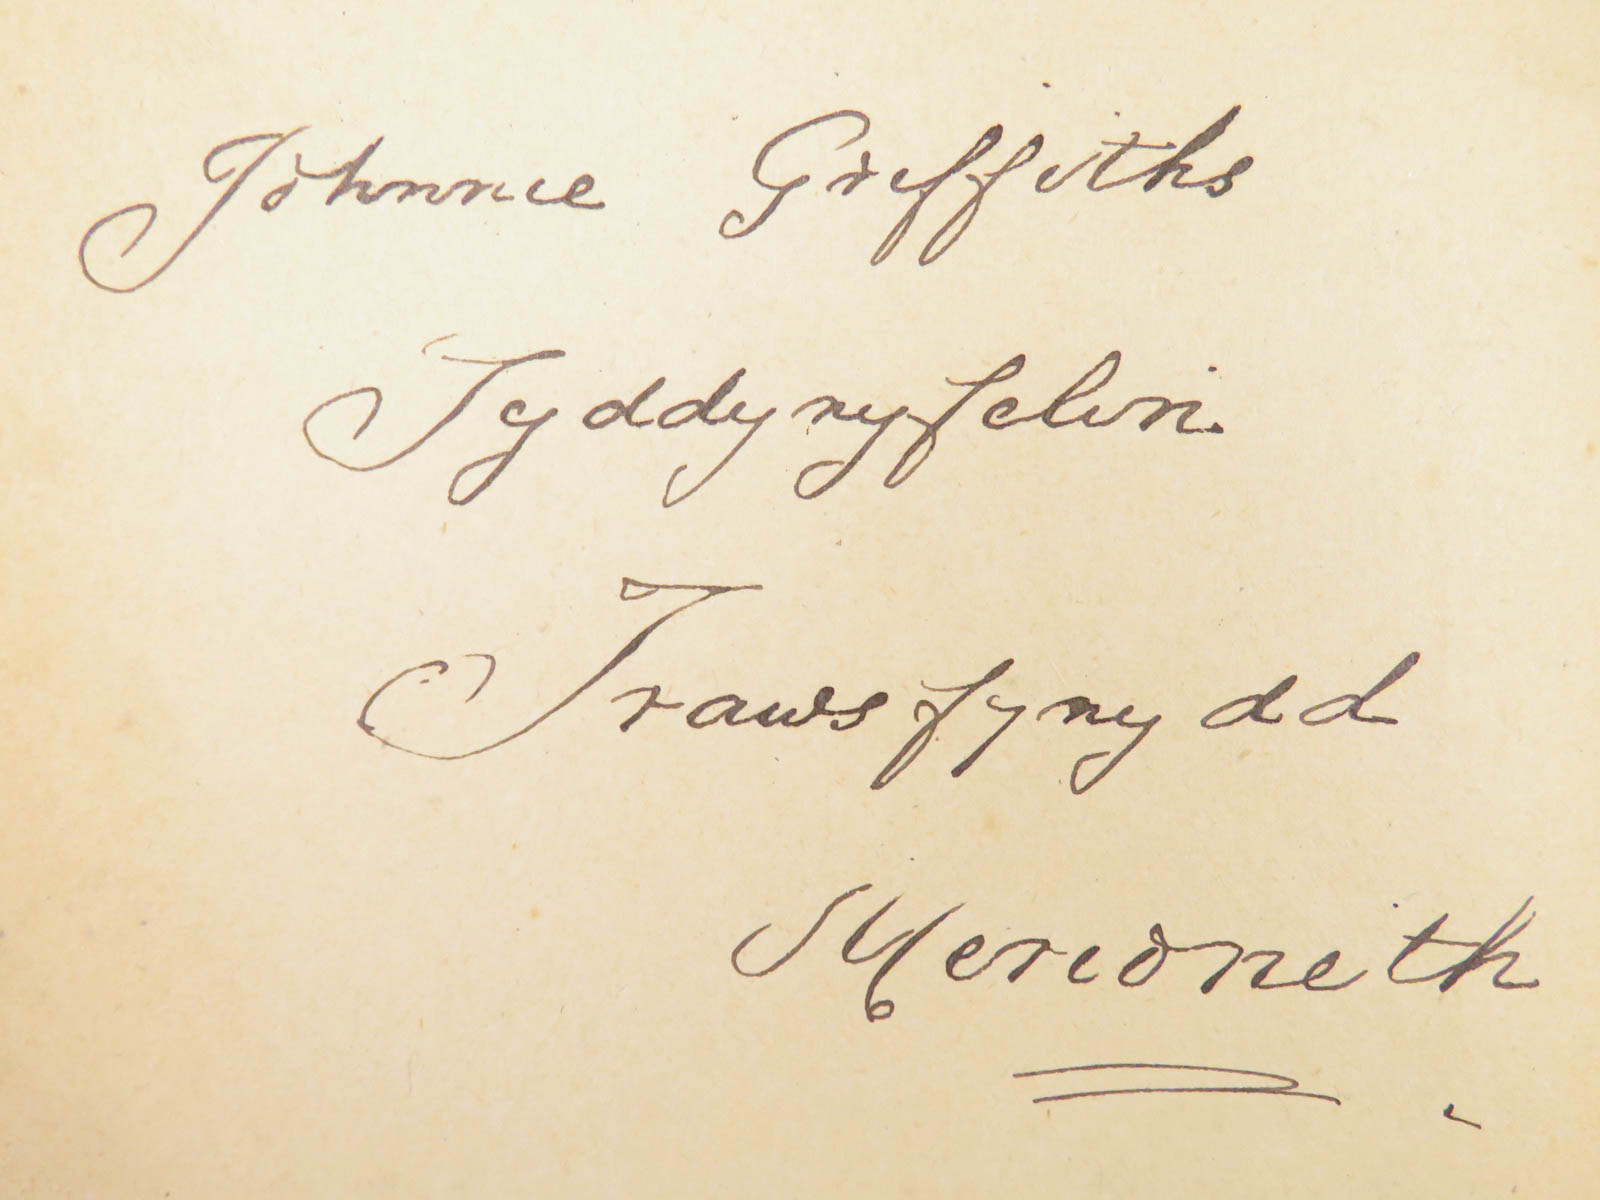 Johnnie Griffiths
Tyddynyfelin
Trawsfynydd
Merioneth